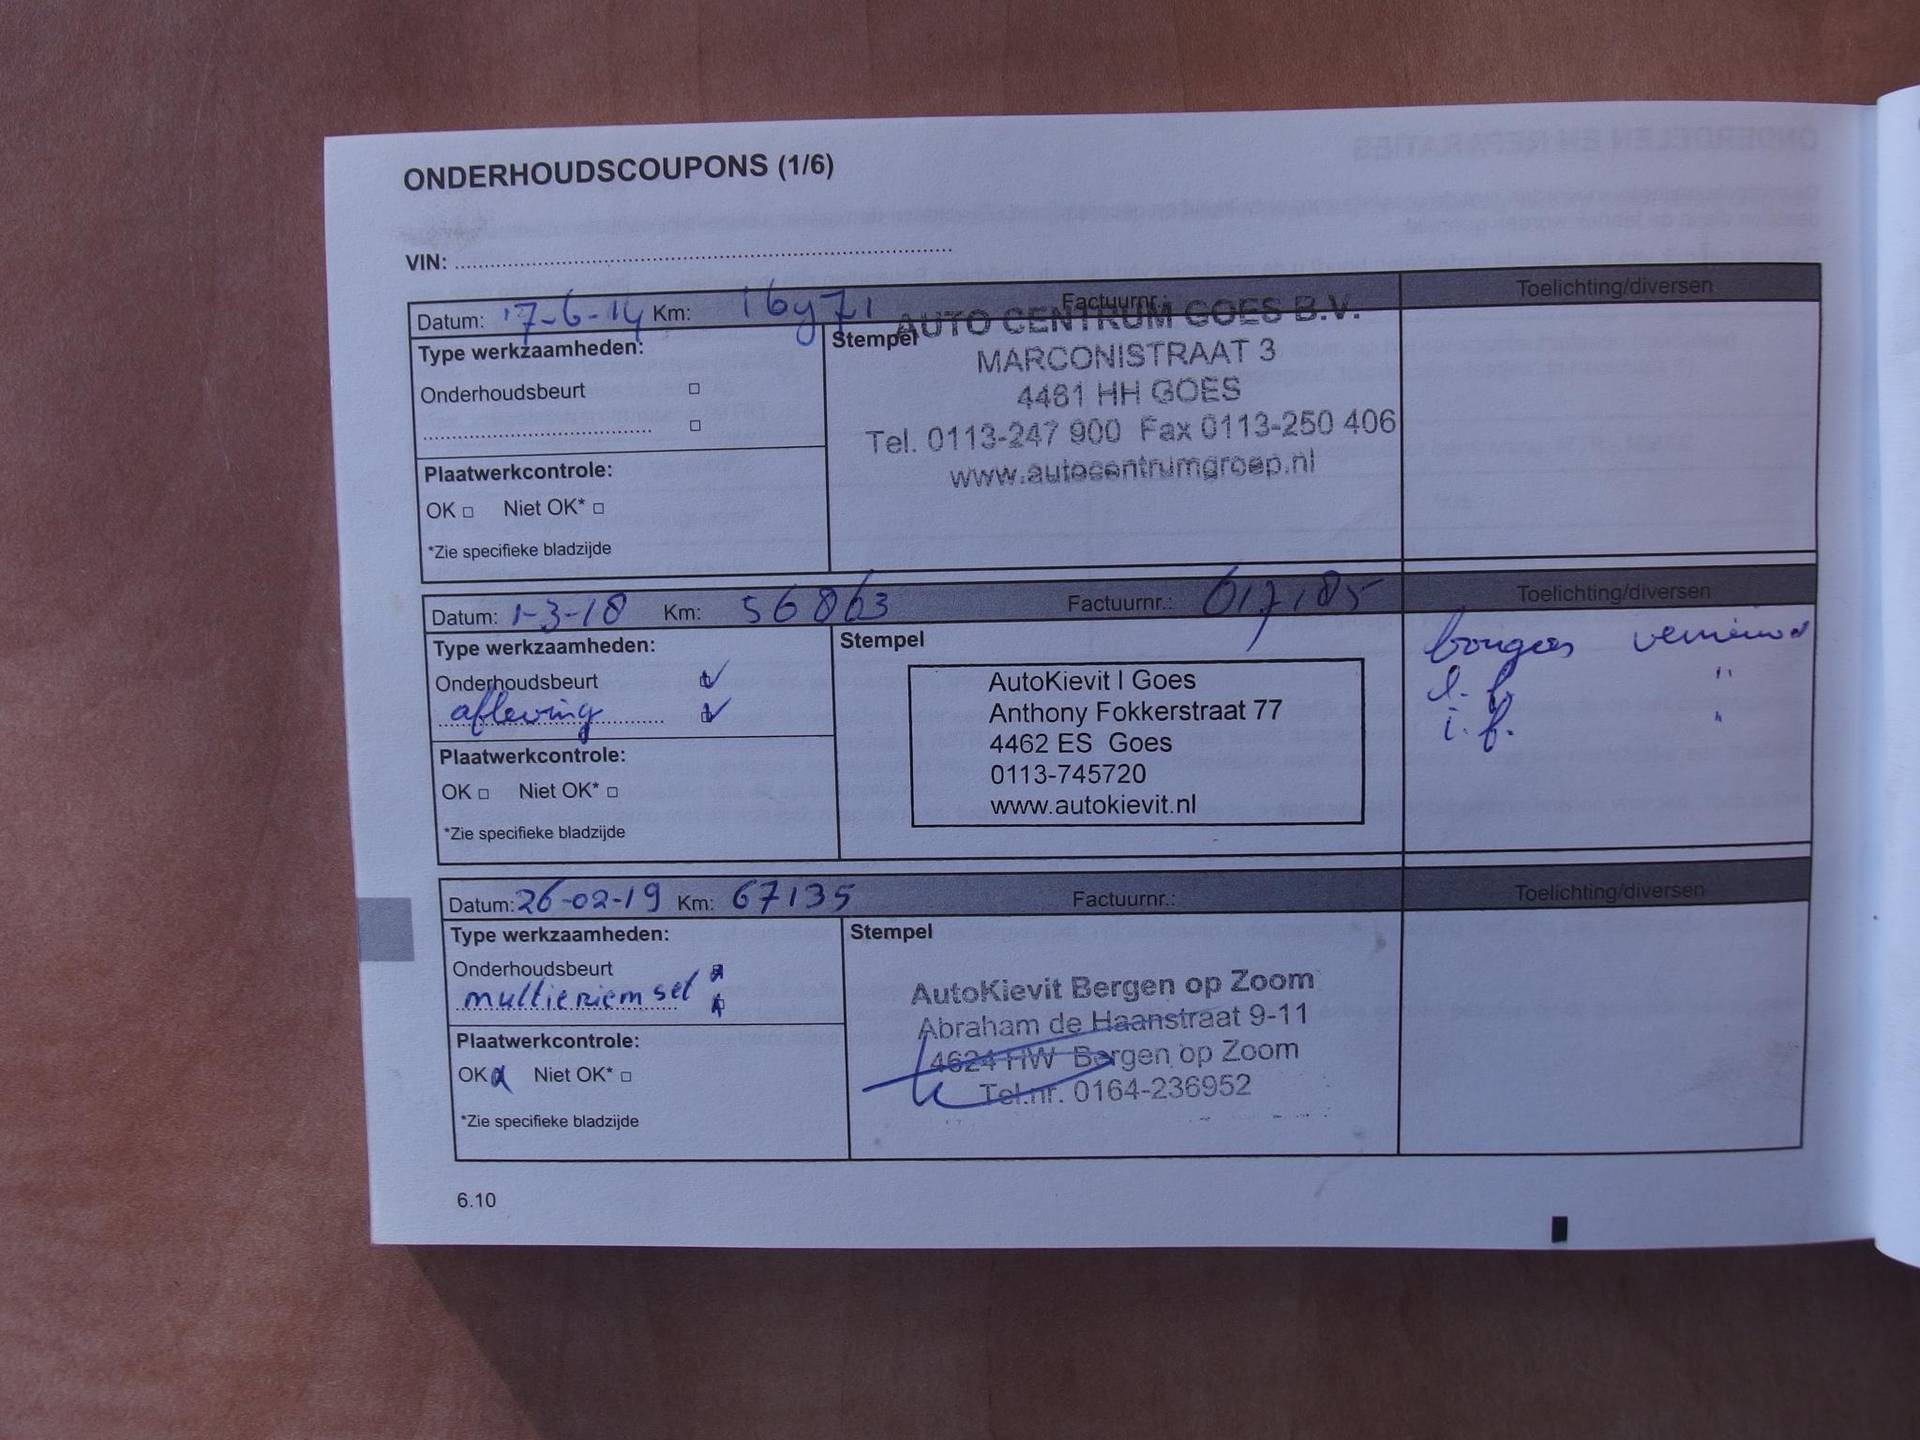 ONDERHOUDSCOUPONS (1/6)
VIN:
Datum: 17-6-14 Km: 16971 Factuurnr.: Toelichting/diversen
Type werkzaamheden:
Onderhoudsbeurt
Plaatwerkcontrole:
OK Niet OK*
*Zie specifieke bladzijde
Stempel
AUTO CENTRUM GOES B.V.
MARCONISTRAAT 3
4461 HH GOES
Tel. 0113-247 900 Fax 0113-250 406
www.autocentrumgroep.nl
Datum: 1-3-18 Km: 56863 Factuurnr.: 017185 Toelichting/diversen
Type werkzaamheden:
Onderhoudsbeurt
aflevering
Plaatwerkcontrole:
OK Niet OK*
*Zie specifieke bladzijde
Stempel
AutoKievit | Goes
Anthony Fokkerstraat 77
4462 ES Goes
0113-745720
www.autokievit.nl
bougies vernieuwd
l.f. "
i.f. "
Datum: 26-02-19 Km: 67135 Factuurnr.: Toelichting/diversen
Type werkzaamheden:
Onderhoudsbeurt
multieriem set
Plaatwerkcontrole:
OK Niet OK*
*Zie specifieke bladzijde
Stempel
AutoKievit Bergen op Zoom
Abraham de Haanstraat 9-11
4624 HW Bergen op Zoom
Tel.nr. 0164-236952
6.10